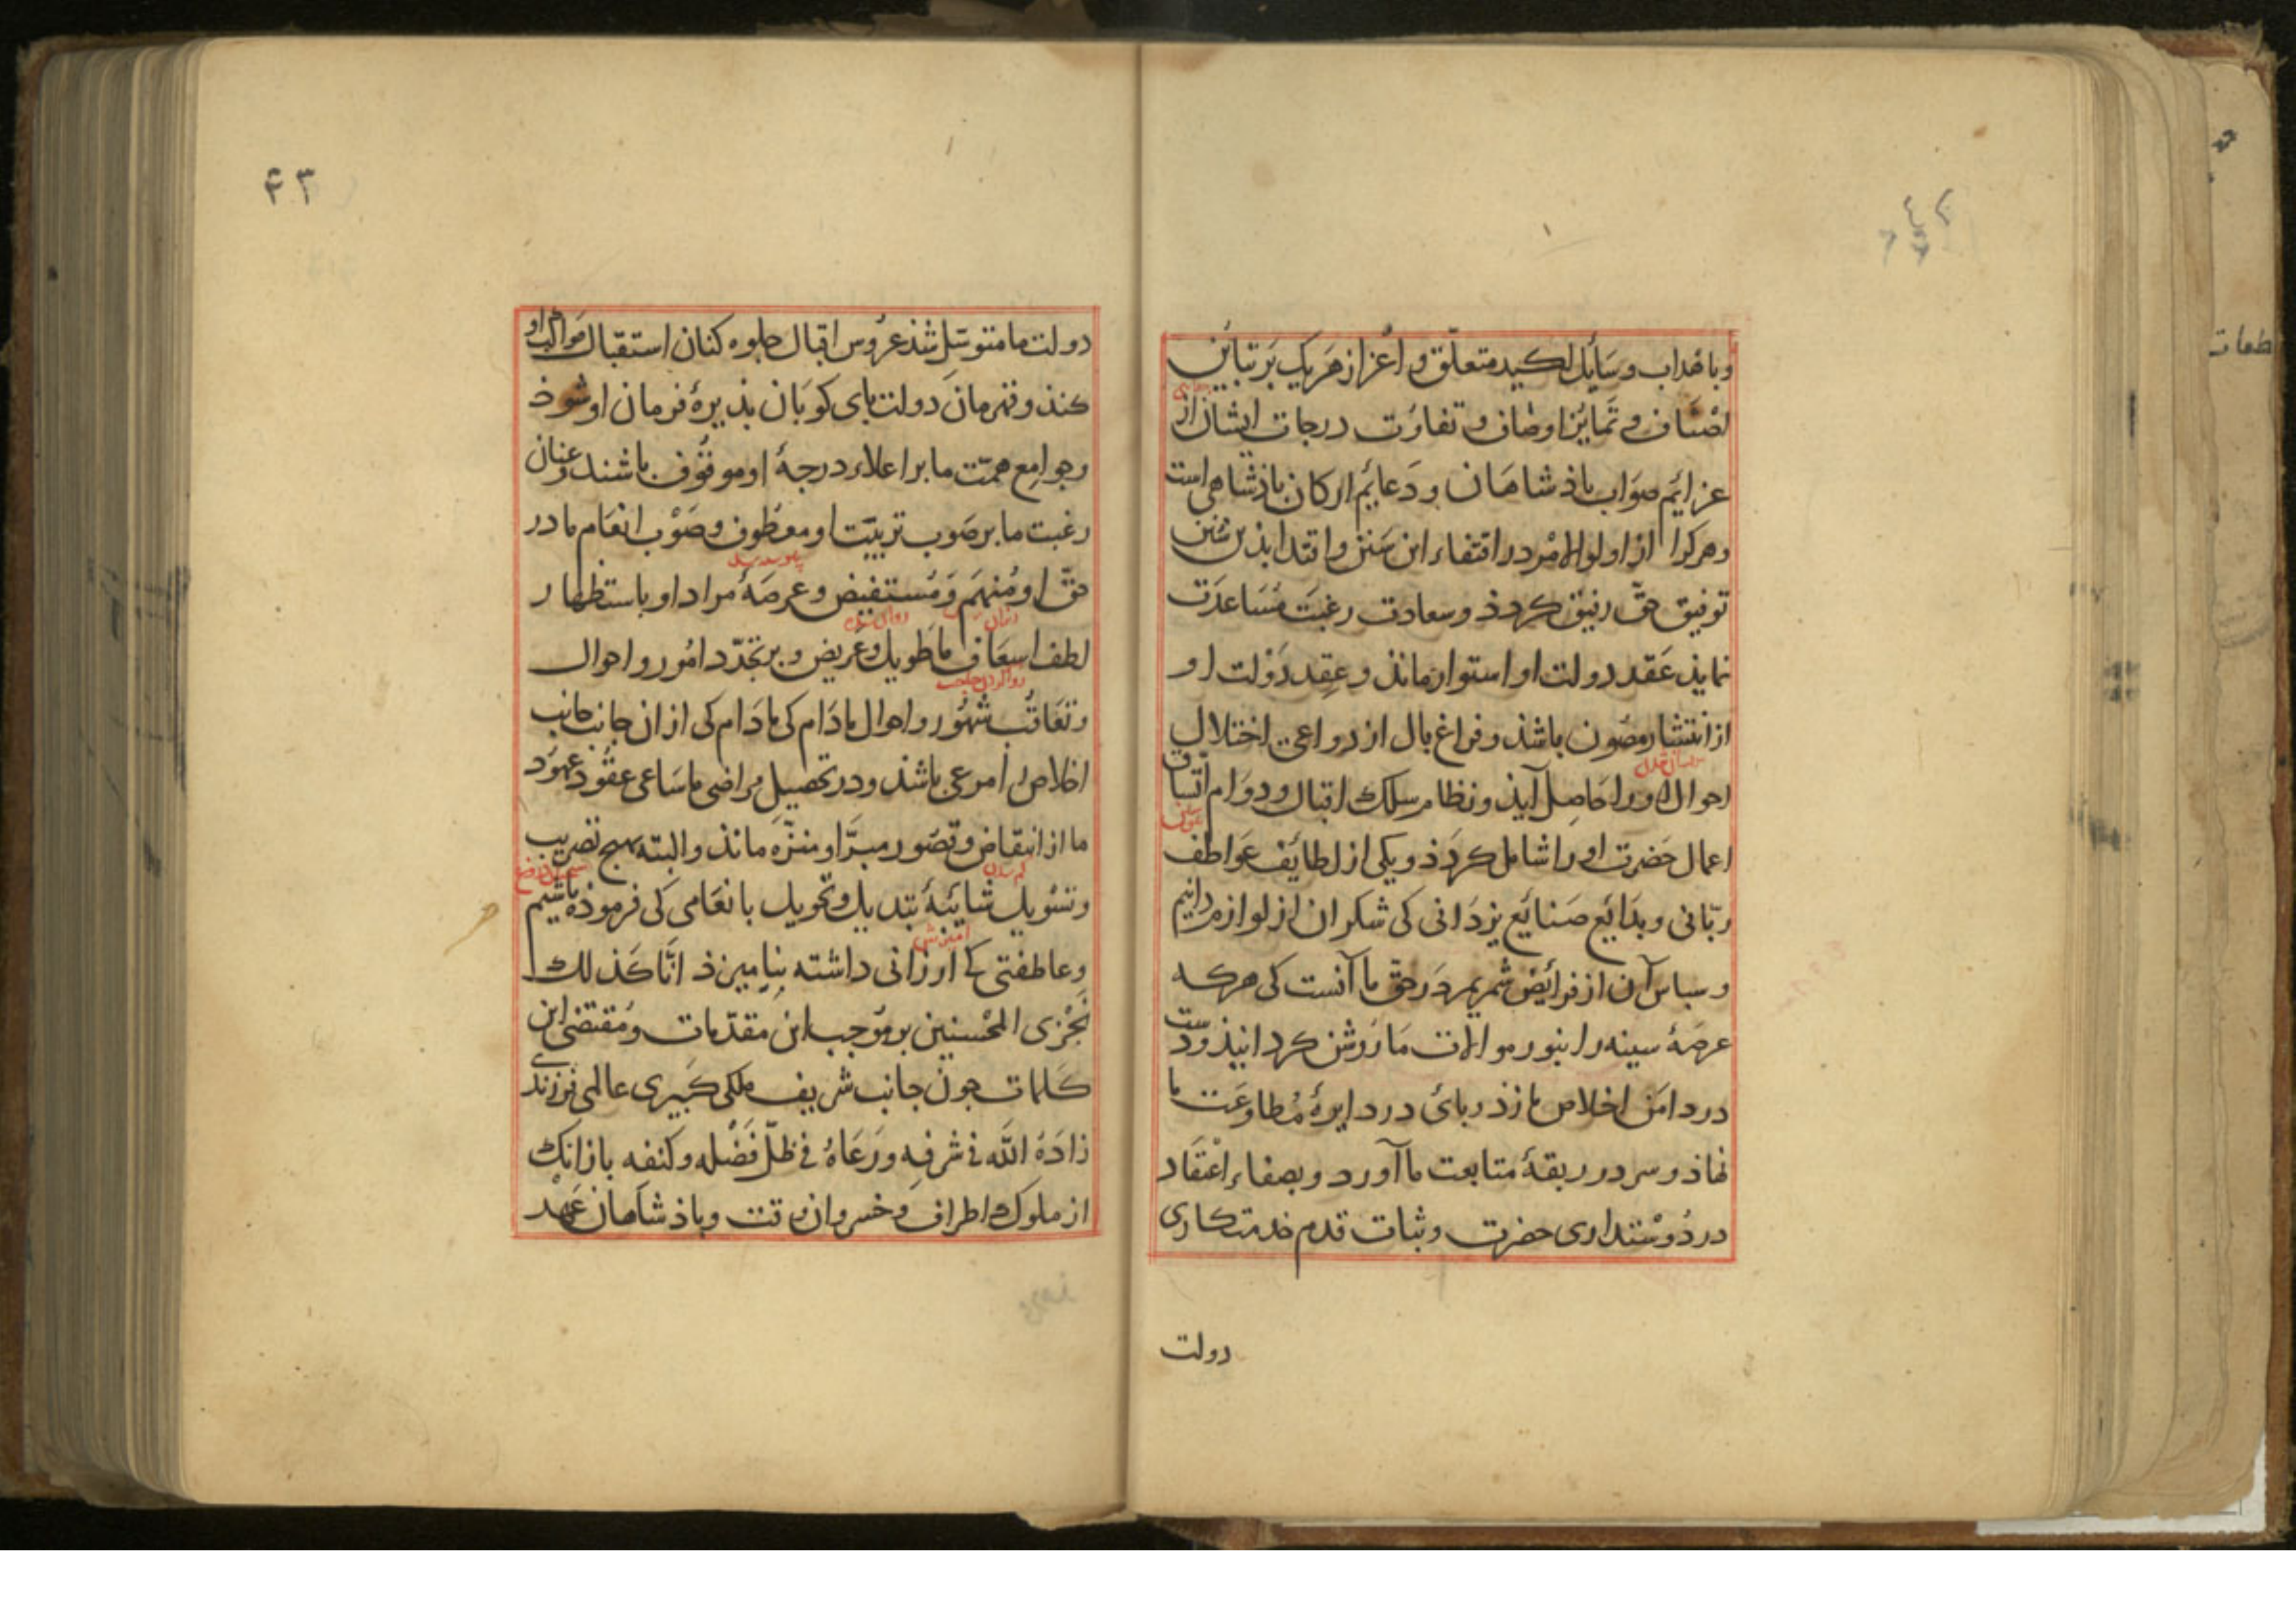 وباهداب وسایل اکید متعلق و اعزاز هریک بر تباین
اصناف و تمایز اوصاف و تفاوت درجات ایشان از
عزایم صواب باذشاهان ودعایم ارکان باذشاهی است
وهرکرا از اولوالامر در اقتفاء این سنن و اقتدا بذین سنن
توفیق حق رفیق کردذ وسعادت رغبت مساعدت
نمایذ عقد دولت او استوار مانذ وعقد دولت او
از انتشار مصون باشذ وفراغ بال از دواعی اختلال
احوال اورا حاصل آیذ ونظام سلک اقبال ودوام اتساق
اعمال حضرت اورا شامل کردذ ویکی از لطایف عواطف
ربانی وبدایع صنایع یزدانی کی شکر ان از لوازم دانیم
وسباس آن از فرایض شمریم در حق ما آنست کی هرکه
عرصهٔ سینه را بنور موالات ما روشن کردانیذ ودست
در دامن اخلاص ما زذ وبای در دایرهٔ مطاوعت ما
نهاذ وسر در ربقهٔ متابعت ما آورد وبصفاء اعتقاد
در دوستداری حضرت وثبات قدم خدمتکاری
دولت
۴۳
دولت ما متوسل شذ عروس اقبال جلوه کنان استقبال مواکب او
کند وقهرمان دولت بای کوبان بذیرهٔ فرمان او شوذ
وجوامع همت ما بر اعلاء درجهٔ او موقوف باشند وعنان
رغبت ما بر صوب تربیت او معطوف وصوب انعام ما در
حق او منهم ومستفیض وعرصهٔ مراد او باستظهار
لطف اسعاف ما طویل وعریض وبر تجدد امور واحوال
روا کردن حاجت
وتعاقب شهور واحوال مادام کی مادام کی از ان جانب جانب
اخلاص مرعی باشذ ودر تحصیل مراضی ما ساعی عقود عهود
ما از انتقاض وقصور مبرا ومنزه مانذ والبته بهیچ تضریب
کم شدن
وتسویل شائبهٔ تبدیل وتحویل بانعامی کی فرموذه باشیم
امیزش
وعاطفتی که ارزانی داشته بنیامیزذ انا کذلک
نجزی المحسنین بر موجب این مقدمات ومقتضی این
کلمات جون جانب شریف ملکی کبیری عالمی فرزندی
زاده الله فی شرفه ورعاه فی ظل فضله وکنفه بازانک
از ملوک اطراف وخسروان وقت وباذشاهان عهد